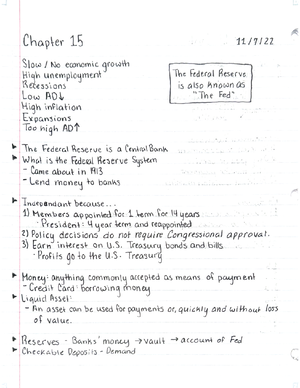 Chapter 15
11/7/22
Slow / No economic growth
High unemployment
Recessions
Low AD↓
High inflation
Expansions
Too high AD↑
The Federal Reserve
is also known as
"The Fed"
▸ The Federal Reserve is a Central Bank
▸ What is the Federal Reserve System
- Came about in 1913
- Lend money to banks
▸ Independant because...
1) Members appointed for 1 term for 14 years
· President: 4 year term and reappointed
2) Policy decisions do not require Congressional approval.
3) Earn interest on U.S. Treasury bonds and bills
· Profits go to the U.S. Treasury
▸ Money: anything commonly accepted as means of payment
- Credit Card: borrowing money
▸ Liquid Asset:
- An asset can be used for payments or, quickly and without loss
of value.
▸ Reserves - Banks' money → vault → account of Fed
▸ Checkable Deposits - Demand